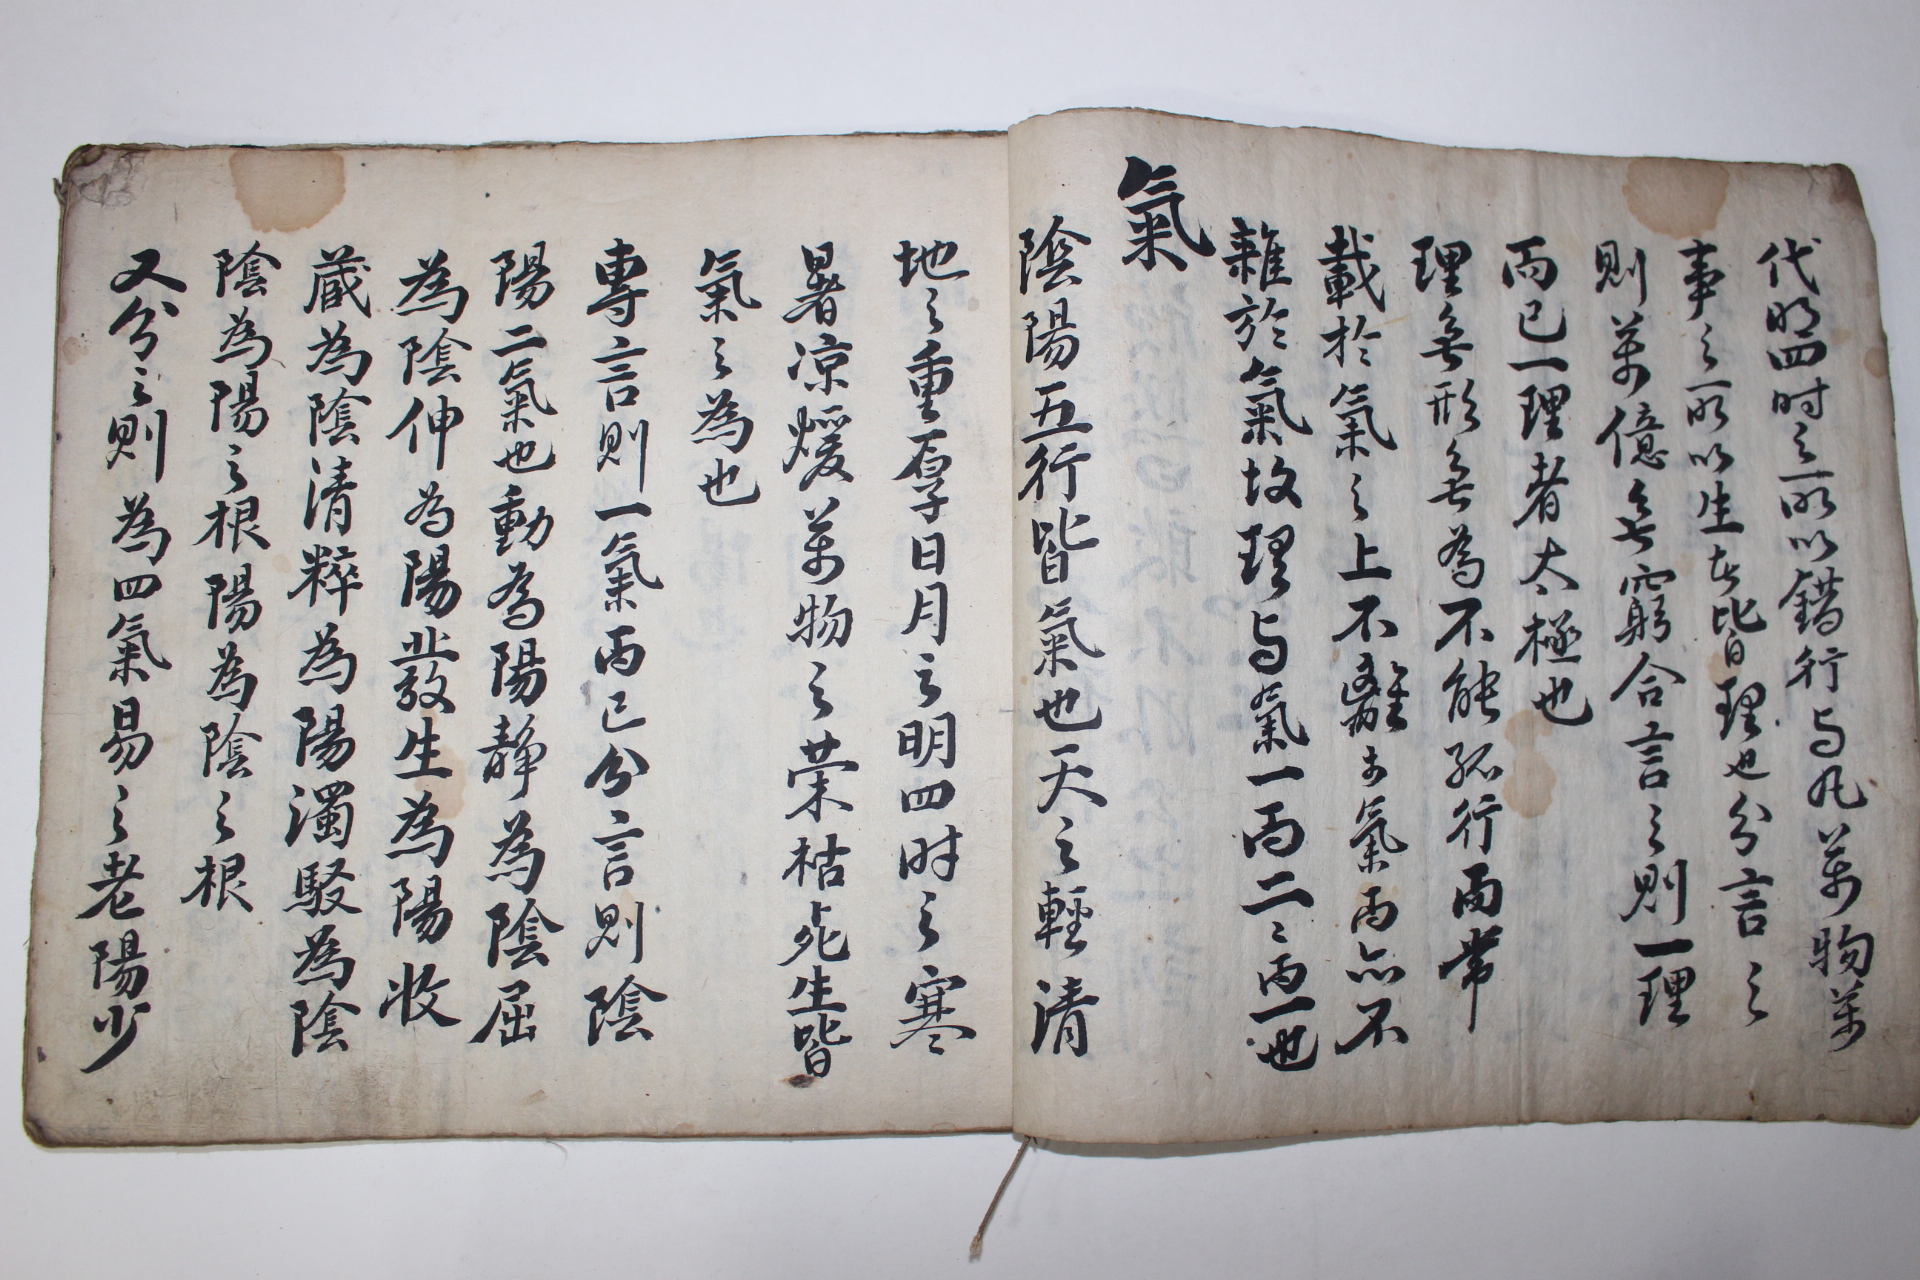 代明四时之所以錯行与凡萬物萬
事之所以生者皆理也分言之
則萬億無窮合言之則一理
而已一理者太極也
理無形無為不能孤行而常
載於氣之上不離於氣而亦不
雜於氣故理与氣一而二二而一也
氣
陰陽五行皆氣也天之輕清
地之重厚日月之明四时之寒
暑凉煖萬物之荣枯死生皆
氣之為也
專言則一氣而已分言則陰
陽二氣也動為陽靜為陰屈
為陰伸為陽發生為陽收
蔵為陰清粹為陽濁駁為陰
陰為陽之根陽為陰之根
又分之則為四氣易之老陽少